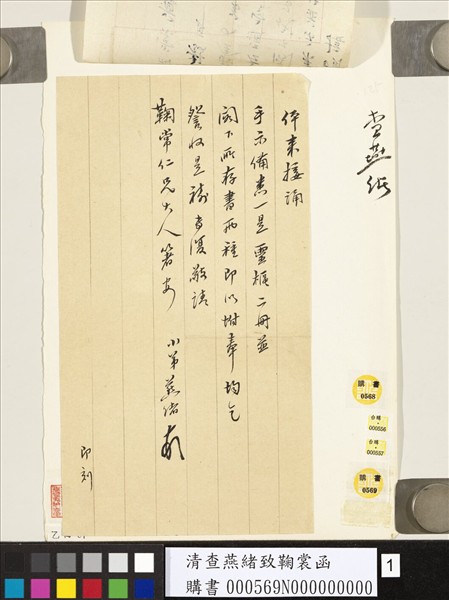 查燕緒
伻來接誦
手示備悉一是靈樞二冊並
閣下所存書兩種即以坿奉均乞
詧收是禱專復敬請
鞠常仁兄大人箸安
小弟燕緒頓
即刻
購書
0568
000556
000557
購書
0569
清查燕緒致鞠裳函
購書 000569N000000000
1